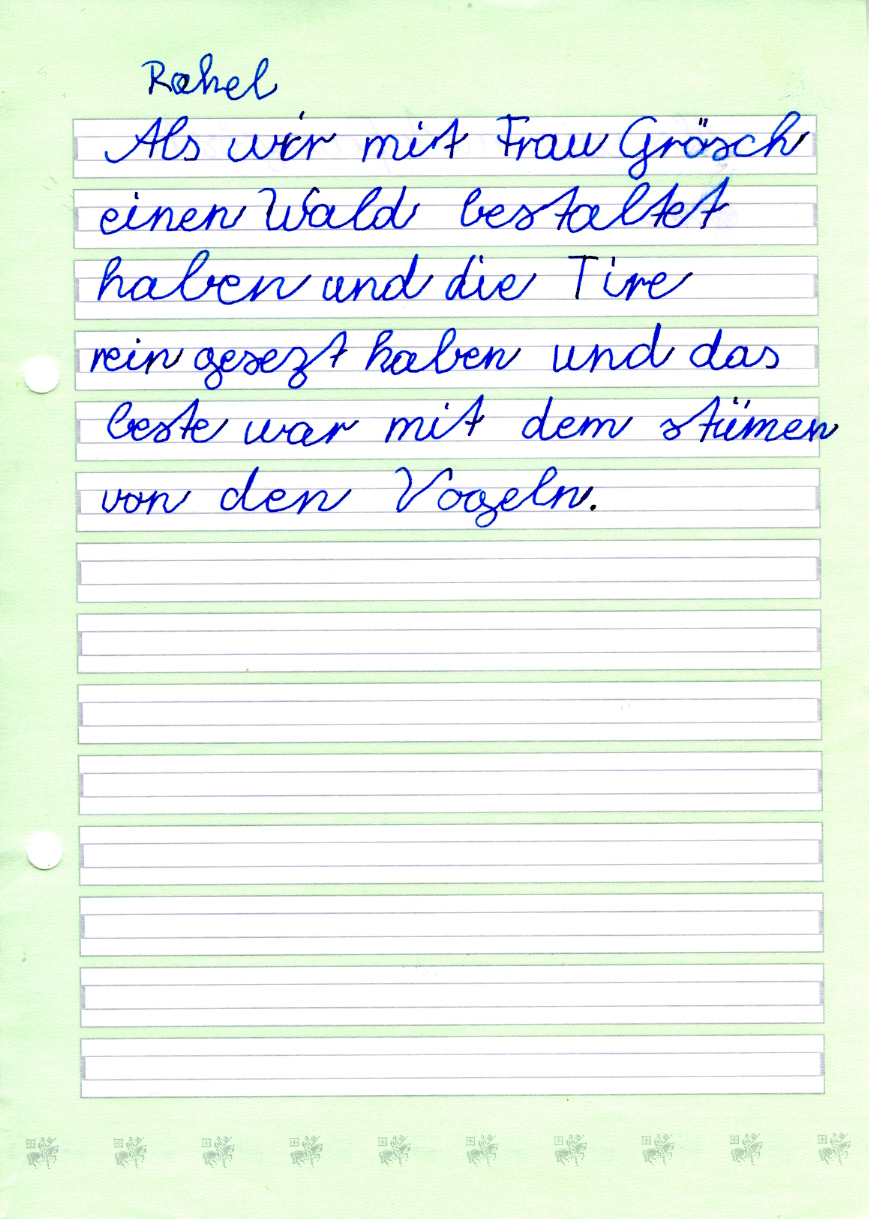 Rahel
Als wir mit Frau Grösch
einen Wald bestaltet
haben und die Tire
rein gesezt haben und das
beste war mit dem stümen
von den Vogeln.